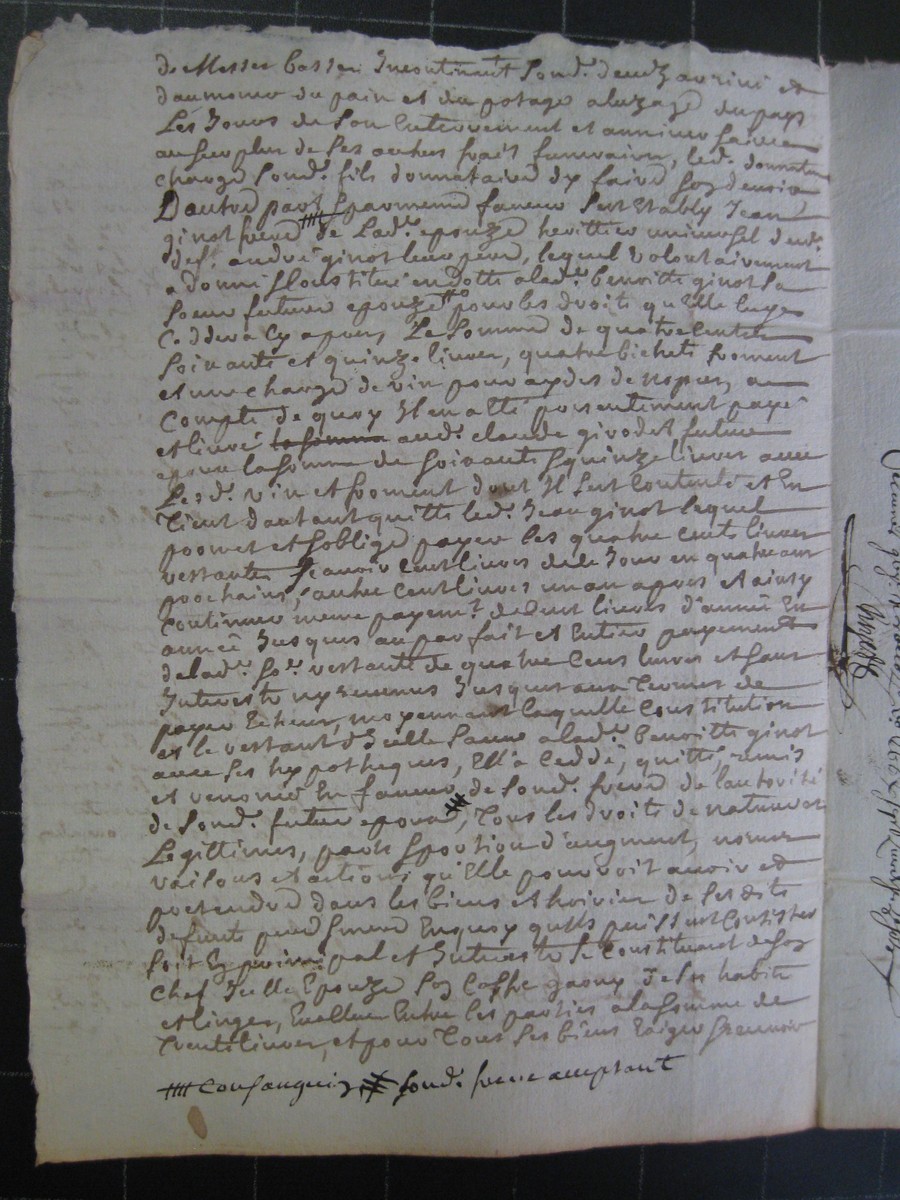 de Messes basses Incontinant sond. deceds arrivé et
daumoner du pain et du potage a luzage du pays
Les Jours de son Enterrement et anniversaire
au surplus de ses autres frais funeraires, led. donnateur
charge sond. fils donnataire dy faire son devoir
Dautre part Sparmeme faveur sest Etably Jean
ginot frere de Lad. epouze herittier universel dud.
def. andré ginot leur pere, lequel volontairement
a donné Constitué en dotte a lad. benoitte ginot sa
soeur future epouze pour les droits qu'Elle luy
Ceddera Cy apres, La Somme de quatre Cents
soixante et quinze livres, quatre bichets froment
et une charge de vin pour aydes de nopces, a
Compte de quoy Il en a Eté presentement payé
et livré la somme aud. claude girodet futur
epoux la somme de soixante Squinze livres avec
Lesd. vin et froment dont Il sest Contenté et En
tient dautant quitte led. Jean ginot lequel
promet et soblige payer les quatre cents livres
restantes Scavoir Cent livres dela Jour en quatre ans
prochains, autre Cent livres un an apres et ainsy
continuer meme payemt. de Cent livres d'année En
année Jusques au parfait et Entier payement
de lad. so. restante de quatre Cens livres et sans
Interests ny revenus Jusques aux termes de
payer Echeus, moyennant laquelle Constitution
et le restant d'Icelle sauve a lad. Benoitte ginot
avec ses hypotheques, Ell'a Ceddé, quitté, remis
et renoncé En faveur de sond. frere de lautorité
de sond. futur epoux, Tous les droits de nature et
Legittimes, parts Sportion d'augment, noms
raisons et actions qu'Elle pourroit avoir et
pretendre dans les biens et hoiries de ses dits
defunts pere Smere Enquoy quils puissent Consister
soit En principal et Interests se Constituant de son
Chef Icelle Epouze son Coffre garny de ses habits
et linges, Evalluez Entre les parties a la somme de
Trente livres, et pour Tous ses biens Exiger Srecevoir
consanguin sond. frere acceptant